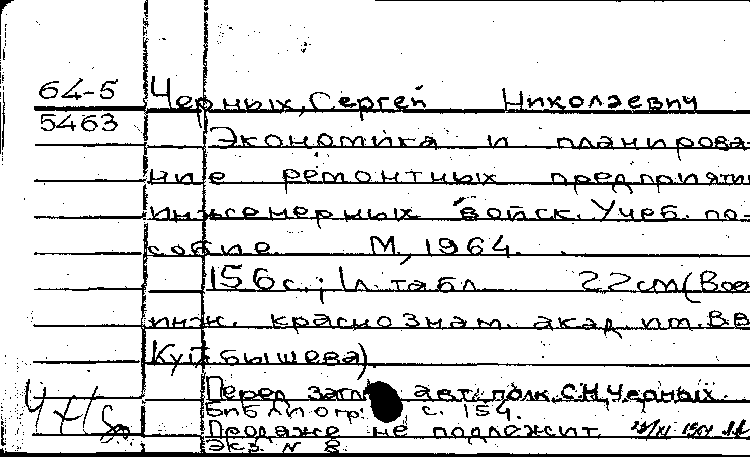 64-5
5463
Черных, Сергей Николаевич
Экономика и планирова-
ние ремонтных предприяти
инженерных войск. Учеб. по-
собие. М, 1964.
156 с.; 1 л. табл. 22 см (Вое
инж. краснознам. акад им. В.В
Куйбышева)
Перед загл авт: полк. С.Н. Черных.
Библиогр: с. 154.
Продаже не подлежит
Экз. N 8